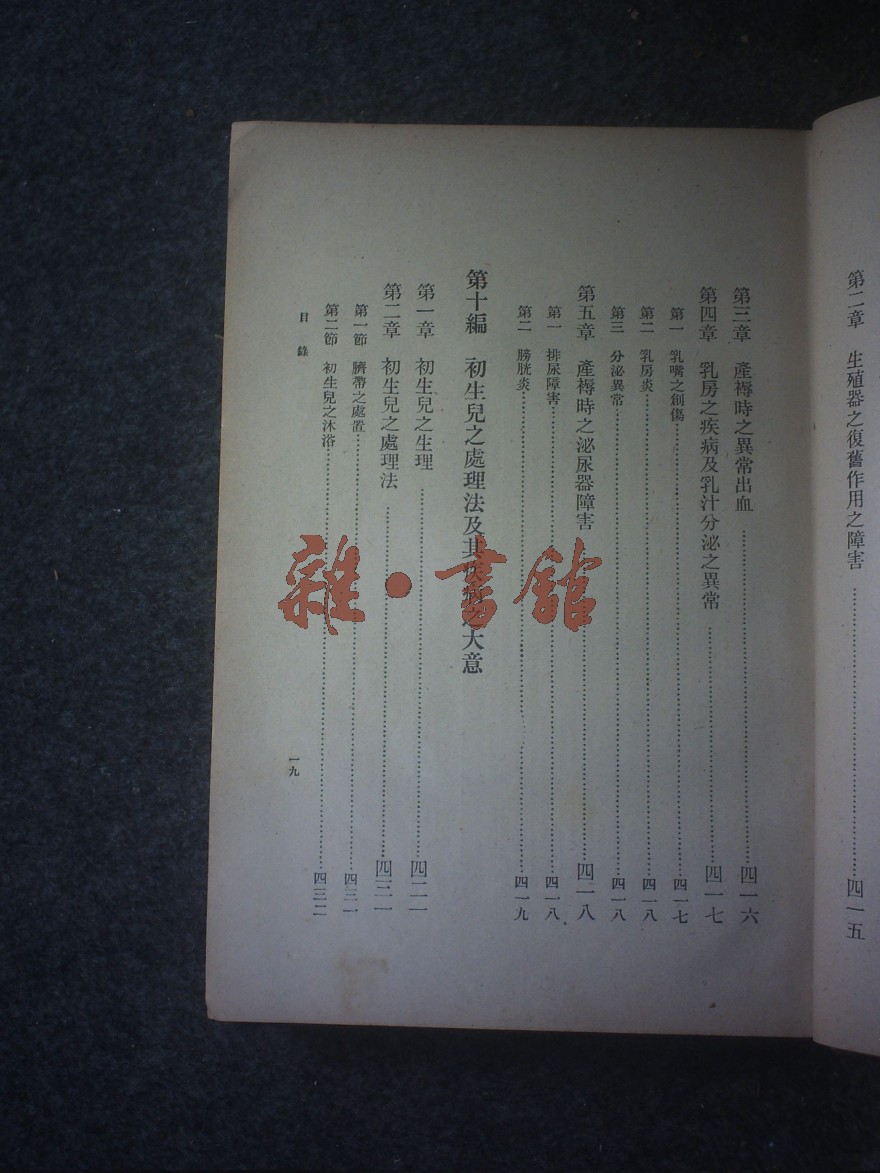 第二章 生殖器之復舊作用之障害……四一五
第三章 產褥時之異常出血……四一六
第四章 乳房之疾病及乳汁分泌之異常……四一七
第一 乳嘴之創傷……四一七
第二 乳房炎……四一八
第三 分泌異常……四一八
第五章 產褥時之泌尿器障害……四一八
第一 排尿障害……四一八
第二 膀胱炎……四一九
第十編 初生兒之處理法及其 大意
第一章 初生兒之生理……四二一
第二章 初生兒之處理法……四三一
第一節 臍帶之處置……四三一
第二節 初生兒之沐浴……四三二
目錄
一九
雜·書館